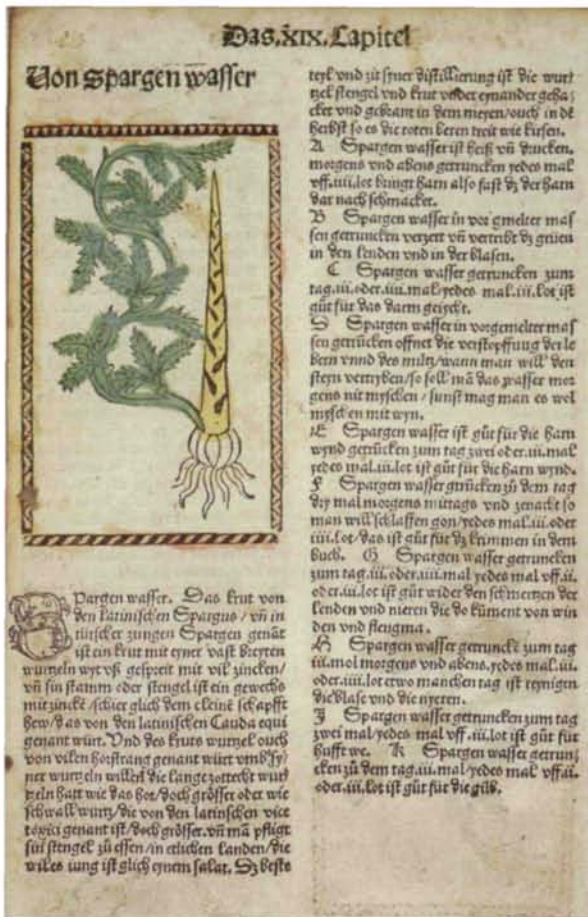 Das.XIX.Capitel
Von Spargen wasser
Spargen wasser. Das krut von
den latinischen Spargus / vn̄ in
tütscher zungen Spargen genāt
ist ein krut mit eyner vast breyten
wurtzeln wyt vß gespreit mit vil zincken/
vn̄ sin stamm oder stengel ist ein gewechs
mit zinckē /schier glich dem cleinē schafft
hew/das von den latinischen Cauda equi
genant würt. Vnd des kruts wurtzel ouch
von vilen horstrang genant würt vmb sy/
ner wurtzeln willen die lange zottecht wurt
tzeln hatt wie das hor/doch grösser oder wie
schwalwurtz/die von den latinschen vice
toxici genant ist/doch grösser.vn̄ mā pfligt
sin stengel zů essen/in etlichen landen/die
wil es iung ist glich eynem salat. Dz beste
teyl vnd zit syner distillierung ist die wurt
tzel stengel vnd krut vnder eynander geha/
cket vnd gebrant in dem meyen/ouch in dē
herbst so es die roten beren treit wie kirsen.
A Spargen wasser ist heiß vn̄ drucken.
morgens vnd abens getruncken yedes mal
vff.iiii.lot bringt harn also fast dz der harn
dar nach schmacket.
B Spargen wasser in vor gmelter mas
sen getruncken verzert vn̄ vertribt dz grien
in den lenden vnd in der blasen.
C Spargen wasser getruncken zum
tag.iii.oder.iiii.mal/yedes mal.iii.lot ist
gůt für das darm gesycht.
D Spargen wasser in vorgemelter mas
sen getrūcken offnet die verstopffung der le
bern vnnd des miltz/wann man will den
steyn vertryben/so soll mā das wasser mor
gens nit myschen / sunst mag man es wol
myschen mit wyn.
E Spargen wasser ist gůt für die harn
wynd getrūcken zum tag zwei oder.iii.mal
yedes mal.iii.lot ist gůt für die harn wynd.
F Spargen wasser getrūcken zů dem tag
dry mal morgens mittags vnd zenacht so
man will schlaffen gon/yedes mal.iii.oder
iiii.lot/das ist gůt für dz krimmen in dem
buch. G Spargen wasser getruncken
zum tag.iii.oder.iiii.mal yedes mal vff.ii.
oder.iii.lot ist gůt wider den schmertzen der
lenden vnd nieren die do kūment von win
den vnd fleugma.
H Spargen wasser getrunckē zum tag
iii.mol morgens vnd abens.yedes mal.iii.
oder.iiii.lot etwo manchen tag ist reynigen
die blase vnd die nyeren.
J Spargen wasser getruncken zum tag
zwei mal/yedes mal vff .iii.lot ist gůt für
hufft we. K Spargen wasser getrun/
cken zů dem tag.iii.mal/yedes mal vff.ii.
oder.iii.lot ist gůt für die gilb.